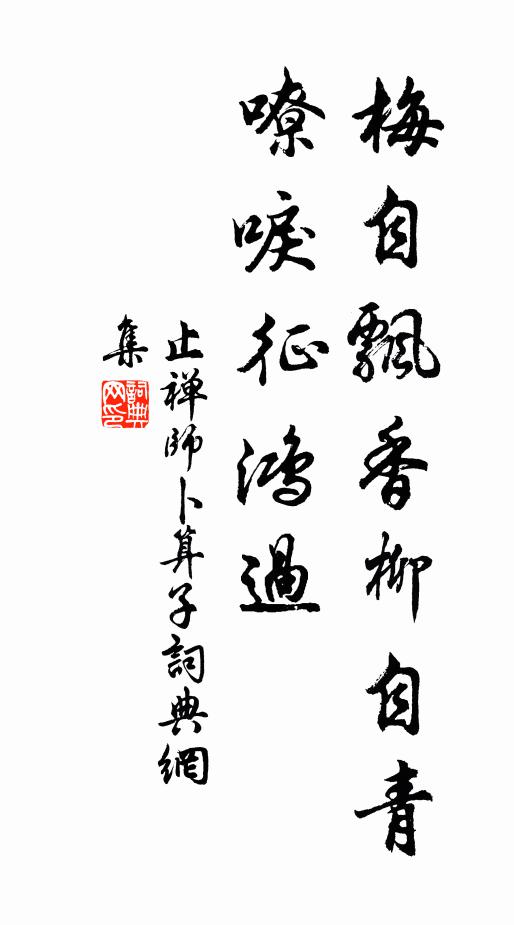 梅自飄香柳自青
嘹唳征鴻過
止禅師卜算子詞典網
集
詞典網印